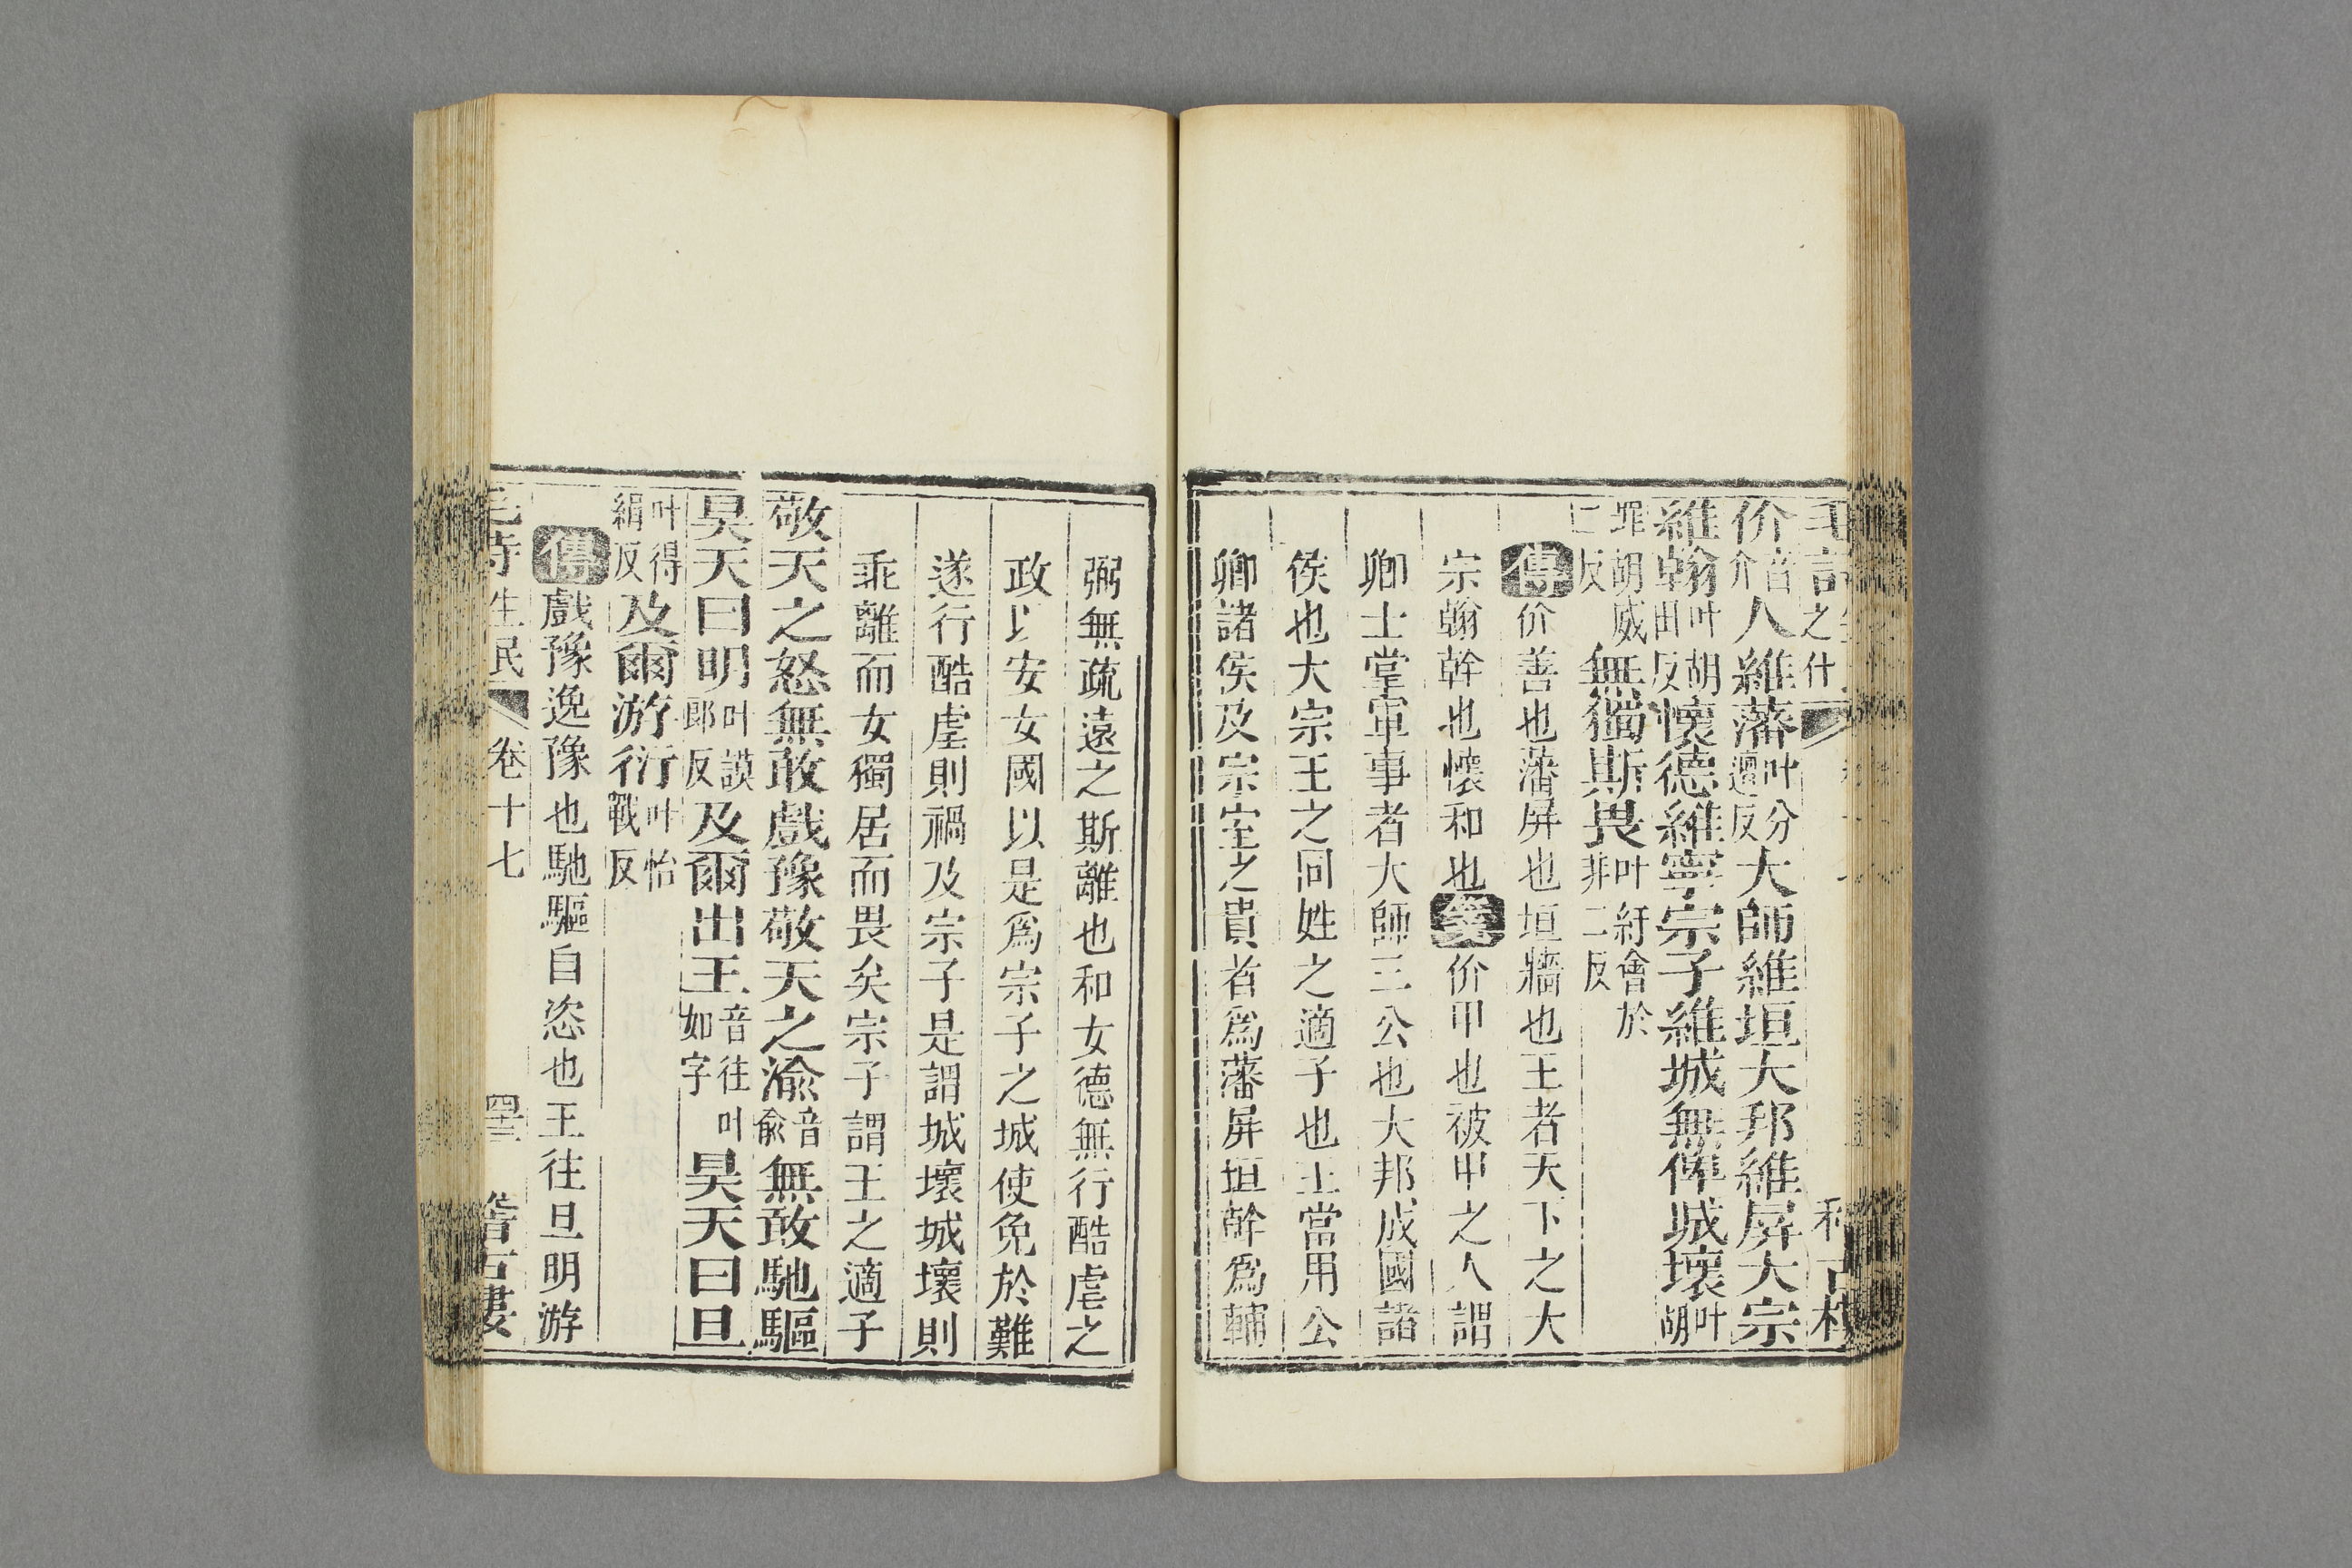 价音介人維藩叶分邅反大師維垣大邦維屏大宗
維翰叶胡田反懷德維寧宗子維城無俾城壞叶胡
罪胡威二反無獨斯畏叶紆會於非二反
傳价善也藩屏也垣牆也王者天下之大
宗翰幹也懷和也箋价甲也被甲之人謂
卿士掌軍事者大師三公也大邦成國諸
侯也大宗王之同姓之適子也王當用公
卿諸侯及宗室之貴者爲藩屏垣幹爲輔
弼無疏遠之斯離也和女德無行酷虐之
政以安女國以是爲宗子之城使免於難
遂行酷虐則禍及宗子是謂城壞城壞則
乖離而女獨居而畏矣宗子謂王之適子
敬天之怒無敢戲豫敬天之渝音俞無敢馳驅
昊天曰明叶謨郎反及爾出王音往叶如字昊天曰旦
叶得絹反及爾游衍叶怡戰反
傳戲豫逸豫也馳驅自恣也王往旦明游
生民 卷十七